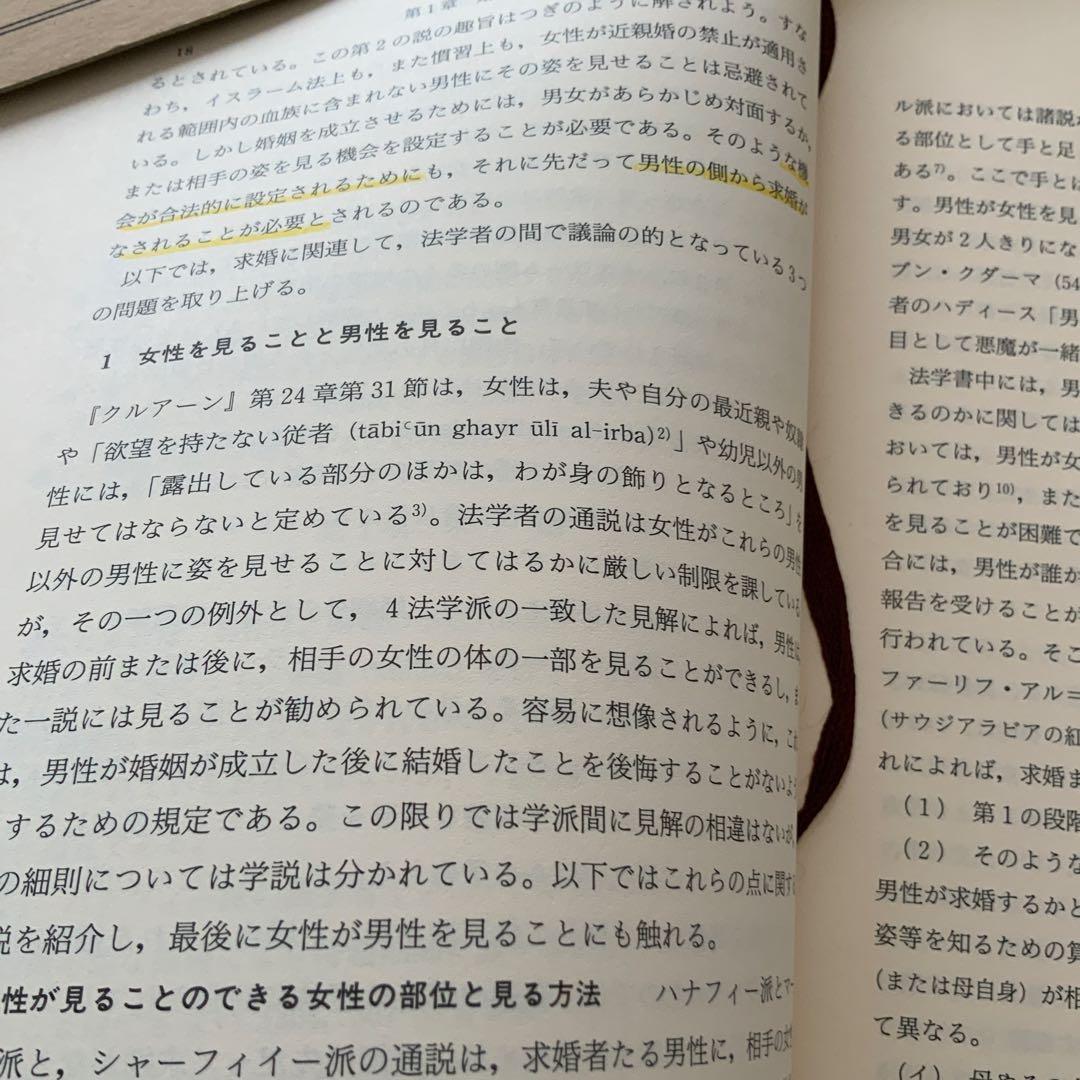 18
第1章
るとされている。この第2の説の趣旨はつぎのように解されよう。すな
わち，イスラーム法上も，また慣習上も，女性が近親婚の禁止が適用さ
れる範囲内の血族に含まれない男性にその姿を見せることは忌避されて
いる。しかし婚姻を成立させるためには，男女があらかじめ対面するか，
または相手の姿を見る機会を設定することが必要である。そのような機
会が合法的に設定されるためにも，それに先だって男性の側から求婚が
なされることが必要とされるのである。
以下では，求婚に関連して，法学者の間で議論の的となっている3つ
の問題を取り上げる。
1 女性を見ることと男性を見ること
『クルアーン』第24章第31節は，女性は，夫や自分の最近親や奴隷
や「欲望を持たない従者 (tābiʿūn ghayr ūlī al-irba)2)」や幼児以外の男
性には，「露出している部分のほかは，わが身の飾りとなるところ」を
見せてはならないと定めている3)。法学者の通説は女性がこれらの男性
以外の男性に姿を見せることに対してはるかに厳しい制限を課している
が，その一つの例外として，4法学派の一致した見解によれば，男性は
求婚の前または後に，相手の女性の体の一部を見ることができるし，ま
た一説には見ることが勧められている。容易に想像されるように，これ
は，男性が婚姻が成立した後に結婚したことを後悔することがないよう
するための規定である。この限りでは学派間に見解の相違はないが，
の細則については学説は分かれている。以下ではこれらの点に関する
説を紹介し，最後に女性が男性を見ることにも触れる。
性が見ることのできる女性の部位と見る方法 ハナフィー派とマー
派と，シャーフィイー派の通説は，求婚者たる男性に，相手の女
ル派においては諸説
る部位として手と足
ある7)。ここで手とは
す。男性が女性を見
男女が2人きりにな
ブン・クダーマ (54
者のハディース「男
目として悪魔が一緒
法学書中には，男
きるのかに関しては
おいては，男性が女
られており10)，また
を見ることが困難で
合には，男性が誰か
報告を受けることが
行われている。そこ
ファーリフ・アル=
(サウジアラビアの紅
れによれば，求婚ま
(1) 第1の段階
(2) そのような
男性が求婚するかと
姿等を知るための算
(または母自身) が相
て異なる。
(イ)